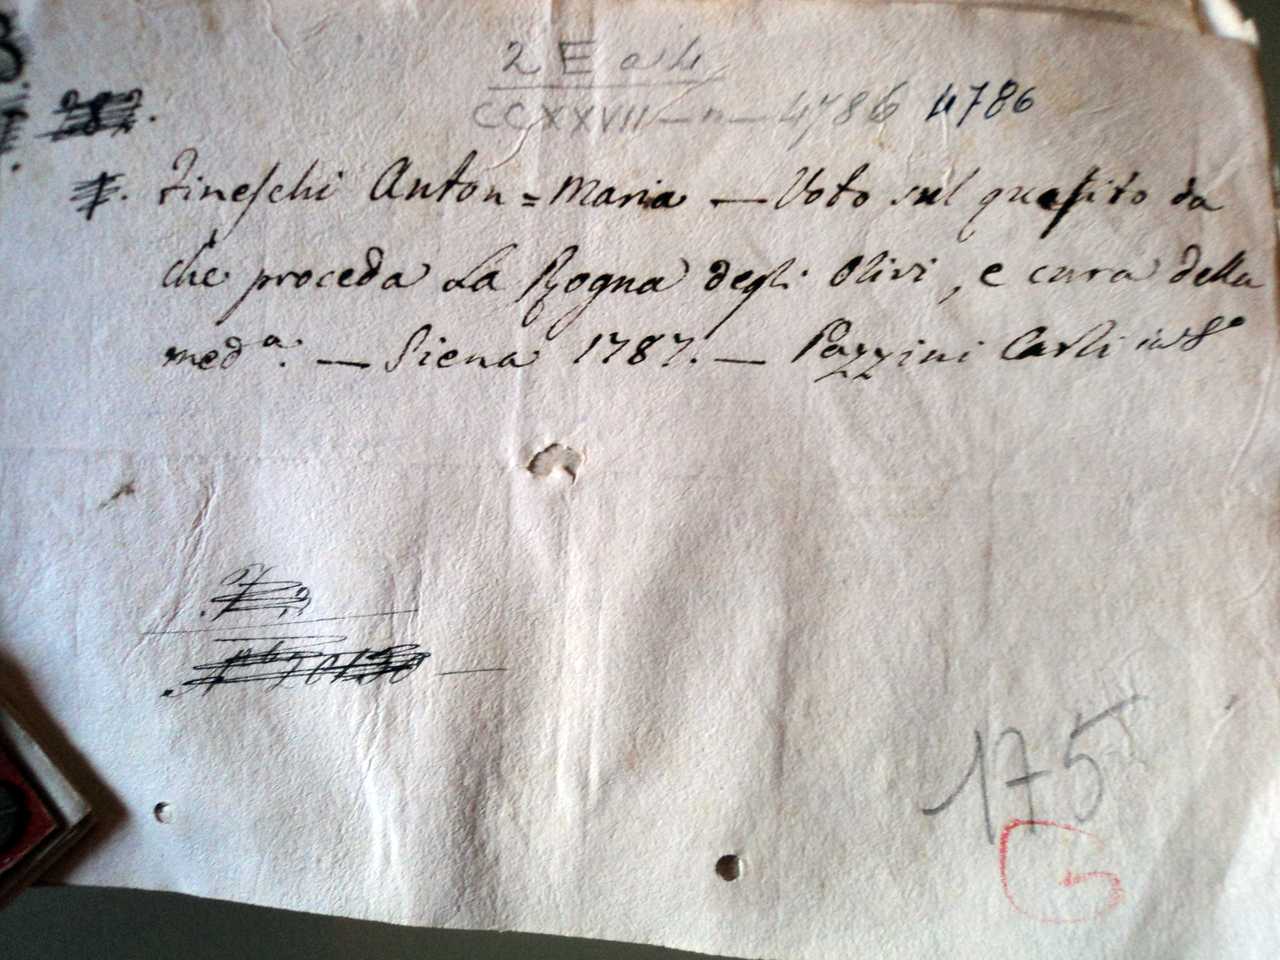 2 E a 4
CCXXVII - n - 4786 4786
Fineschi Anton = Maria — Voto sul quesito da
che proceda La Rogna degli Olivi, e cura della
med.ª — Siena 1787. — Pazzini Carli in 8º
175
G